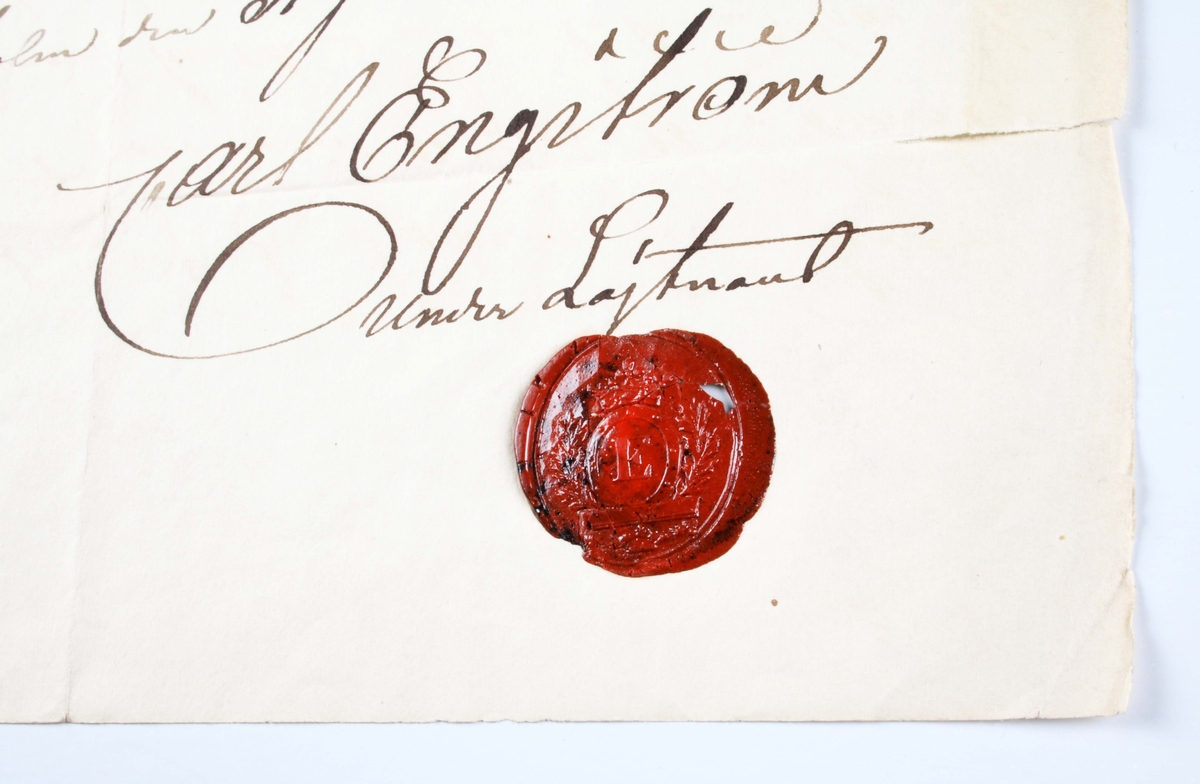 den
Carl Engström
Under Löjtnant
E